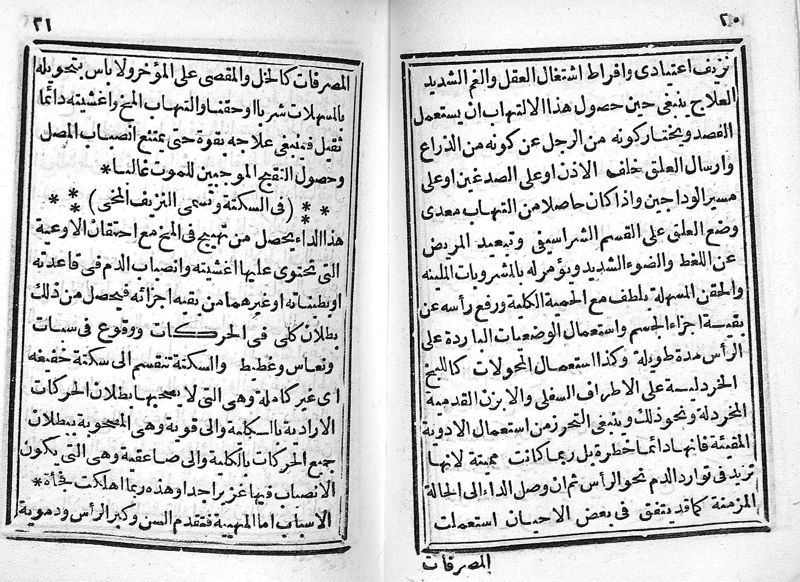 ٢٠
نزيف اعتيادى وافراط اشتغال العقل والغم الشديد
العلاج ينبغى حين حصول هذا الالتهاب ان يستعمل
الفصد ويختار كونه من الرجل عن كونه من الذراع
وارسال العلق خلف الاذن او على الصدغين او على
مسير الوداجين واذا كان حاصلا من التهاب معدى
وضع العلق على القسم الشراسيفى وتبعيد المريض
عن اللغط والضوء الشديد ويؤمر له بالمشروبات الملينه
والحقن المسهلة بلطف مع الحمية الكلية ورفع رأسه عن
بقيسة اجزاء الجسم واستعمال الوضعيات الباردة على
الرأس مدة طويلة وكذا استعمال المحولات كاللبخ
الخردلية على الاطراف السفلى والابزن القدمية
المخردلة ونحو ذلك وينبغى التحرز من استعمال الادوية
المقيئة فانها دائما خطرة بل ربما كانت مميتة لانها
تزيد فى توارد الدم نحو الرأس ثم ان وصل الداء الى الحالة
المزمنة كما قد يتفق فى بعض الاحيان استعملت
المصرفات
٢١
المصرفات كالخل والمقصى على المؤخر ولا باس بتحويله
بالمسهلات شربا او حقنا والتهاب المخ واغشيته دائما
ثقيل فينبغى علاجه بقوة حتى يمتنع انصباب المصل
وحصول التقيح الموجبين للموت غالبا *
* * * (فى السكتة وتسمى النزيف المخى) * * *
هذا الداء يحصل من تهييج فى المخ مع احتقان الاوعية
التى تحتوى عليها اغشيته وانصباب الدم فى قاعدته
او بطيناته او غيرهما من بقيه اجزائه فيحصل من ذلك
بطلان كلى فى الحركات ووقوع فى سبات
ونعاس وغطيط والسكتة تنقسم الى سكتة خفيفه
اى غير كاملة وهى التى لا يصحبها بطلان الحركات
الارادية بالكلية والى قوية وهى المصحوبة ببطلان
جميع الحركات بالكلية والى صاعقية وهى التى يكون
الانصباب فيها غزيرا جدا وهذه ربما اهلكت فجأة *
الاسباب اما المهيئة فتقدم السن وكبر الرأس ودموية